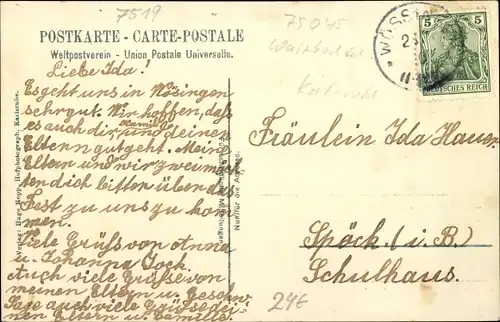 7519
75045
POSTKARTE - CARTE-POSTALE
Weltpostverein - Union Postale Universelle.
WÖSSI
5 5
DEUTSCHES REICH
Liebe Ida!
Es geht uns in
sehr gut. Wir hoffen, daß
es auch dir, und deinen
Eltern gut geht. Meine
Eltern und wir zwei möch
ten dich bitten über das
Fest zu uns zu kom
men.
Viele Grüße von Anna
u. Johanna Jock.
Auch viele Grüße von
meinen Eltern u. Geschw.
Sage auch viele Grüße dei
nen Eltern u. Camilla.
Verlag: Hugo Kopp, Hofphotograph, Karlsruhe.
Nur für die Adresse.
Fräulein Ida Hauser
Spöck. (i. B.)
Schulhaus.
24€